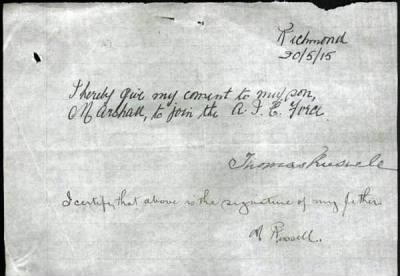 Richmond
20/5/15
I hereby give my consent to my son,
Marshall, to join the A. I. E. Force
Thomas Russell
I certify that above is the signature of my father
M Russell.